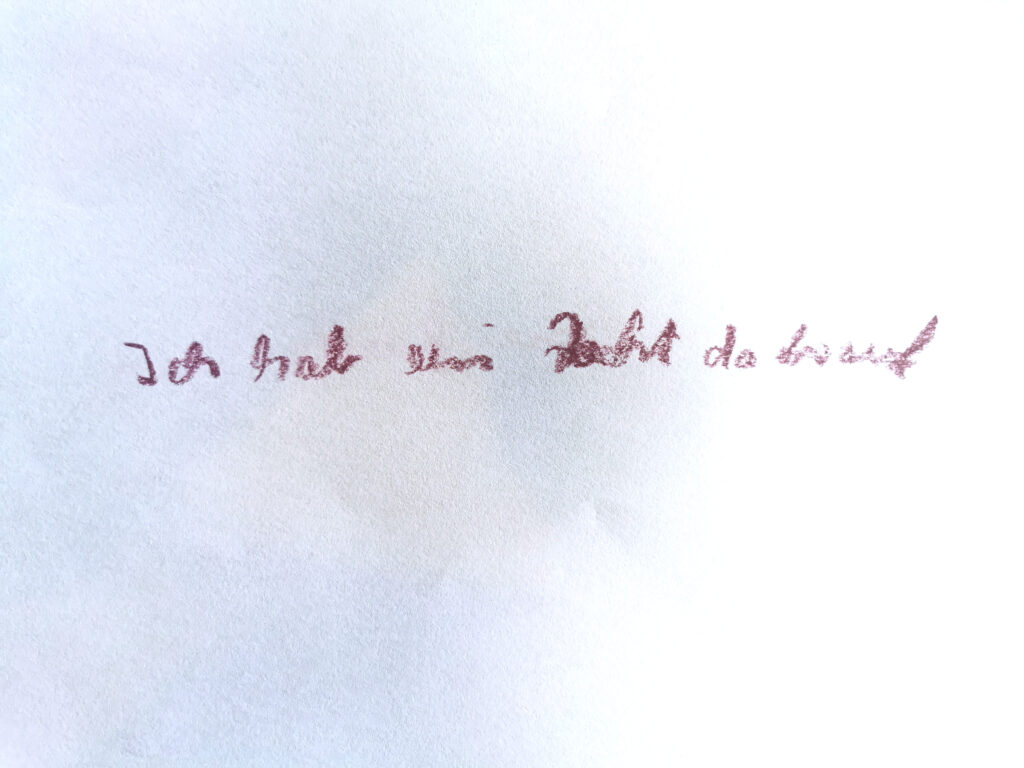 Ich hab ein Recht da drauf